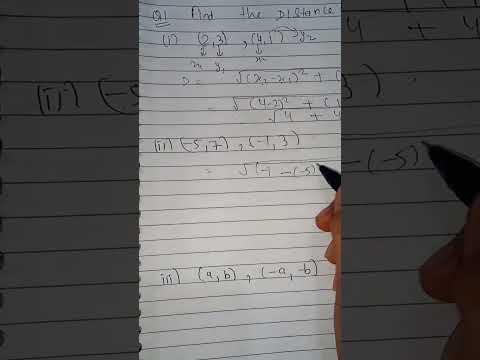 Q1 Find the Distance
(i) (2,3) , (4,1) y₂
x₁ y₁ x₂
D = √(x₂-x₁)² + (
= √(4-2)² + (1
√4 + 4
(ii) (-5,7) , (-1,3)
= √(-1 -(-5)
iii) (a,b) , (-a,-b)